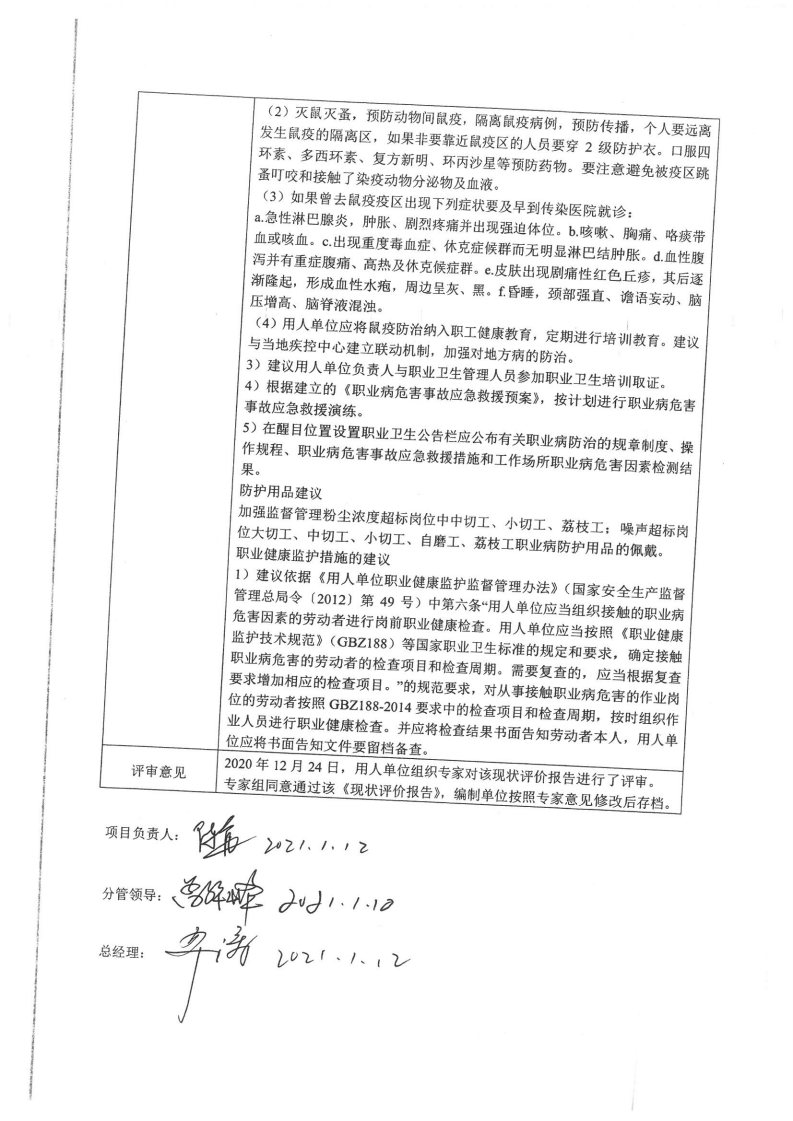 （2）灭鼠灭蚤，预防动物间鼠疫，隔离鼠疫病例，预防传播，个人要远离
发生鼠疫的隔离区，如果非要靠近鼠疫区的人员要穿 2 级防护衣。口服四
环素、多西环素、复方新明、环丙沙星等预防药物。要注意避免被疫区跳
蚤叮咬和接触了染疫动物分泌物及血液。
（3）如果曾去鼠疫疫区出现下列症状要及早到传染医院就诊：
a.急性淋巴腺炎，肿胀、剧烈疼痛并出现强迫体位。b.咳嗽、胸痛、咯痰带
血或咳血。c.出现重度毒血症、休克症候群而无明显淋巴结肿胀。d.血性腹
泻并有重症腹痛、高热及休克候症群。e.皮肤出现剧痛性红色丘疹，其后逐
渐隆起，形成血性水疱，周边呈灰、黑。f.昏睡，颈部强直、谵语妄动、脑
压增高、脑脊液混浊。
（4）用人单位应将鼠疫防治纳入职工健康教育，定期进行培训教育。建议
与当地疾控中心建立联动机制，加强对地方病的防治。
3）建议用人单位负责人与职业卫生管理人员参加职业卫生培训取证。
4）根据建立的《职业病危害事故应急救援预案》，按计划进行职业病危害
事故应急救援演练。
5）在醒目位置设置职业卫生公告栏应公布有关职业病防治的规章制度、操
作规程、职业病危害事故应急救援措施和工作场所职业病危害因素检测结
果。
防护用品建议
加强监督管理粉尘浓度超标岗位中中切工、小切工、荔枝工；噪声超标岗
位大切工、中切工、小切工、自磨工、荔枝工职业病防护用品的佩戴。
职业健康监护措施的建议
1）建议依据《用人单位职业健康监护监督管理办法》（国家安全生产监督
管理总局令〔2012〕第 49 号）中第六条“用人单位应当组织接触的职业病
危害因素的劳动者进行岗前职业健康检查。用人单位应当按照《职业健康
监护技术规范》（GBZ188）等国家职业卫生标准的规定和要求，确定接触
职业病危害的劳动者的检查项目和检查周期。需要复查的，应当根据复查
要求增加相应的检查项目。”的规范要求，对从事接触职业病危害的作业岗
位的劳动者按照 GBZ188-2014 要求中的检查项目和检查周期，按时组织作
业人员进行职业健康检查。并应将检查结果书面告知劳动者本人，用人单
位应将书面告知文件要留档备查。
评审意见
2020 年 12 月 24 日，用人单位组织专家对该现状评价报告进行了评审。
专家组同意通过该《现状评价报告》，编制单位按照专家意见修改后存档。
项目负责人： 2021.1.12
分管领导： 2021.1.10
总经理： 2021.1.12